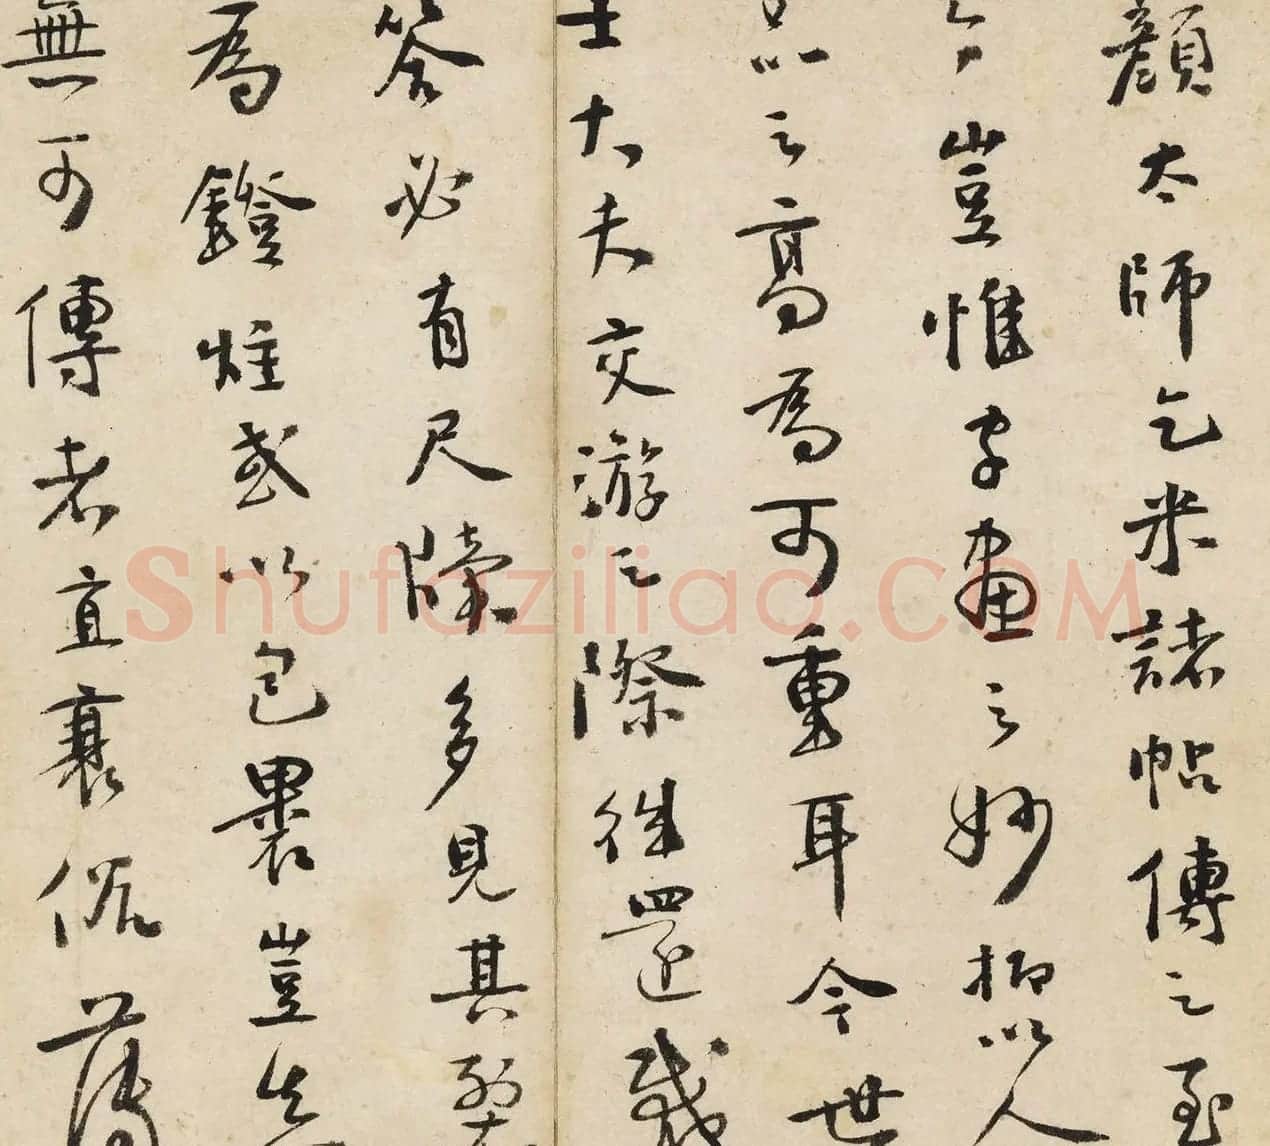 顏太師乞米諸帖傳之至
今豈惟字畫之妙抑以人
品之高為可重耳今世
士大夫交游之際往還或
答必有尺牘多見其裂
為鐙炷或以包裹豈生
無可傳者直衰俗薄
Shufaziliao.COM